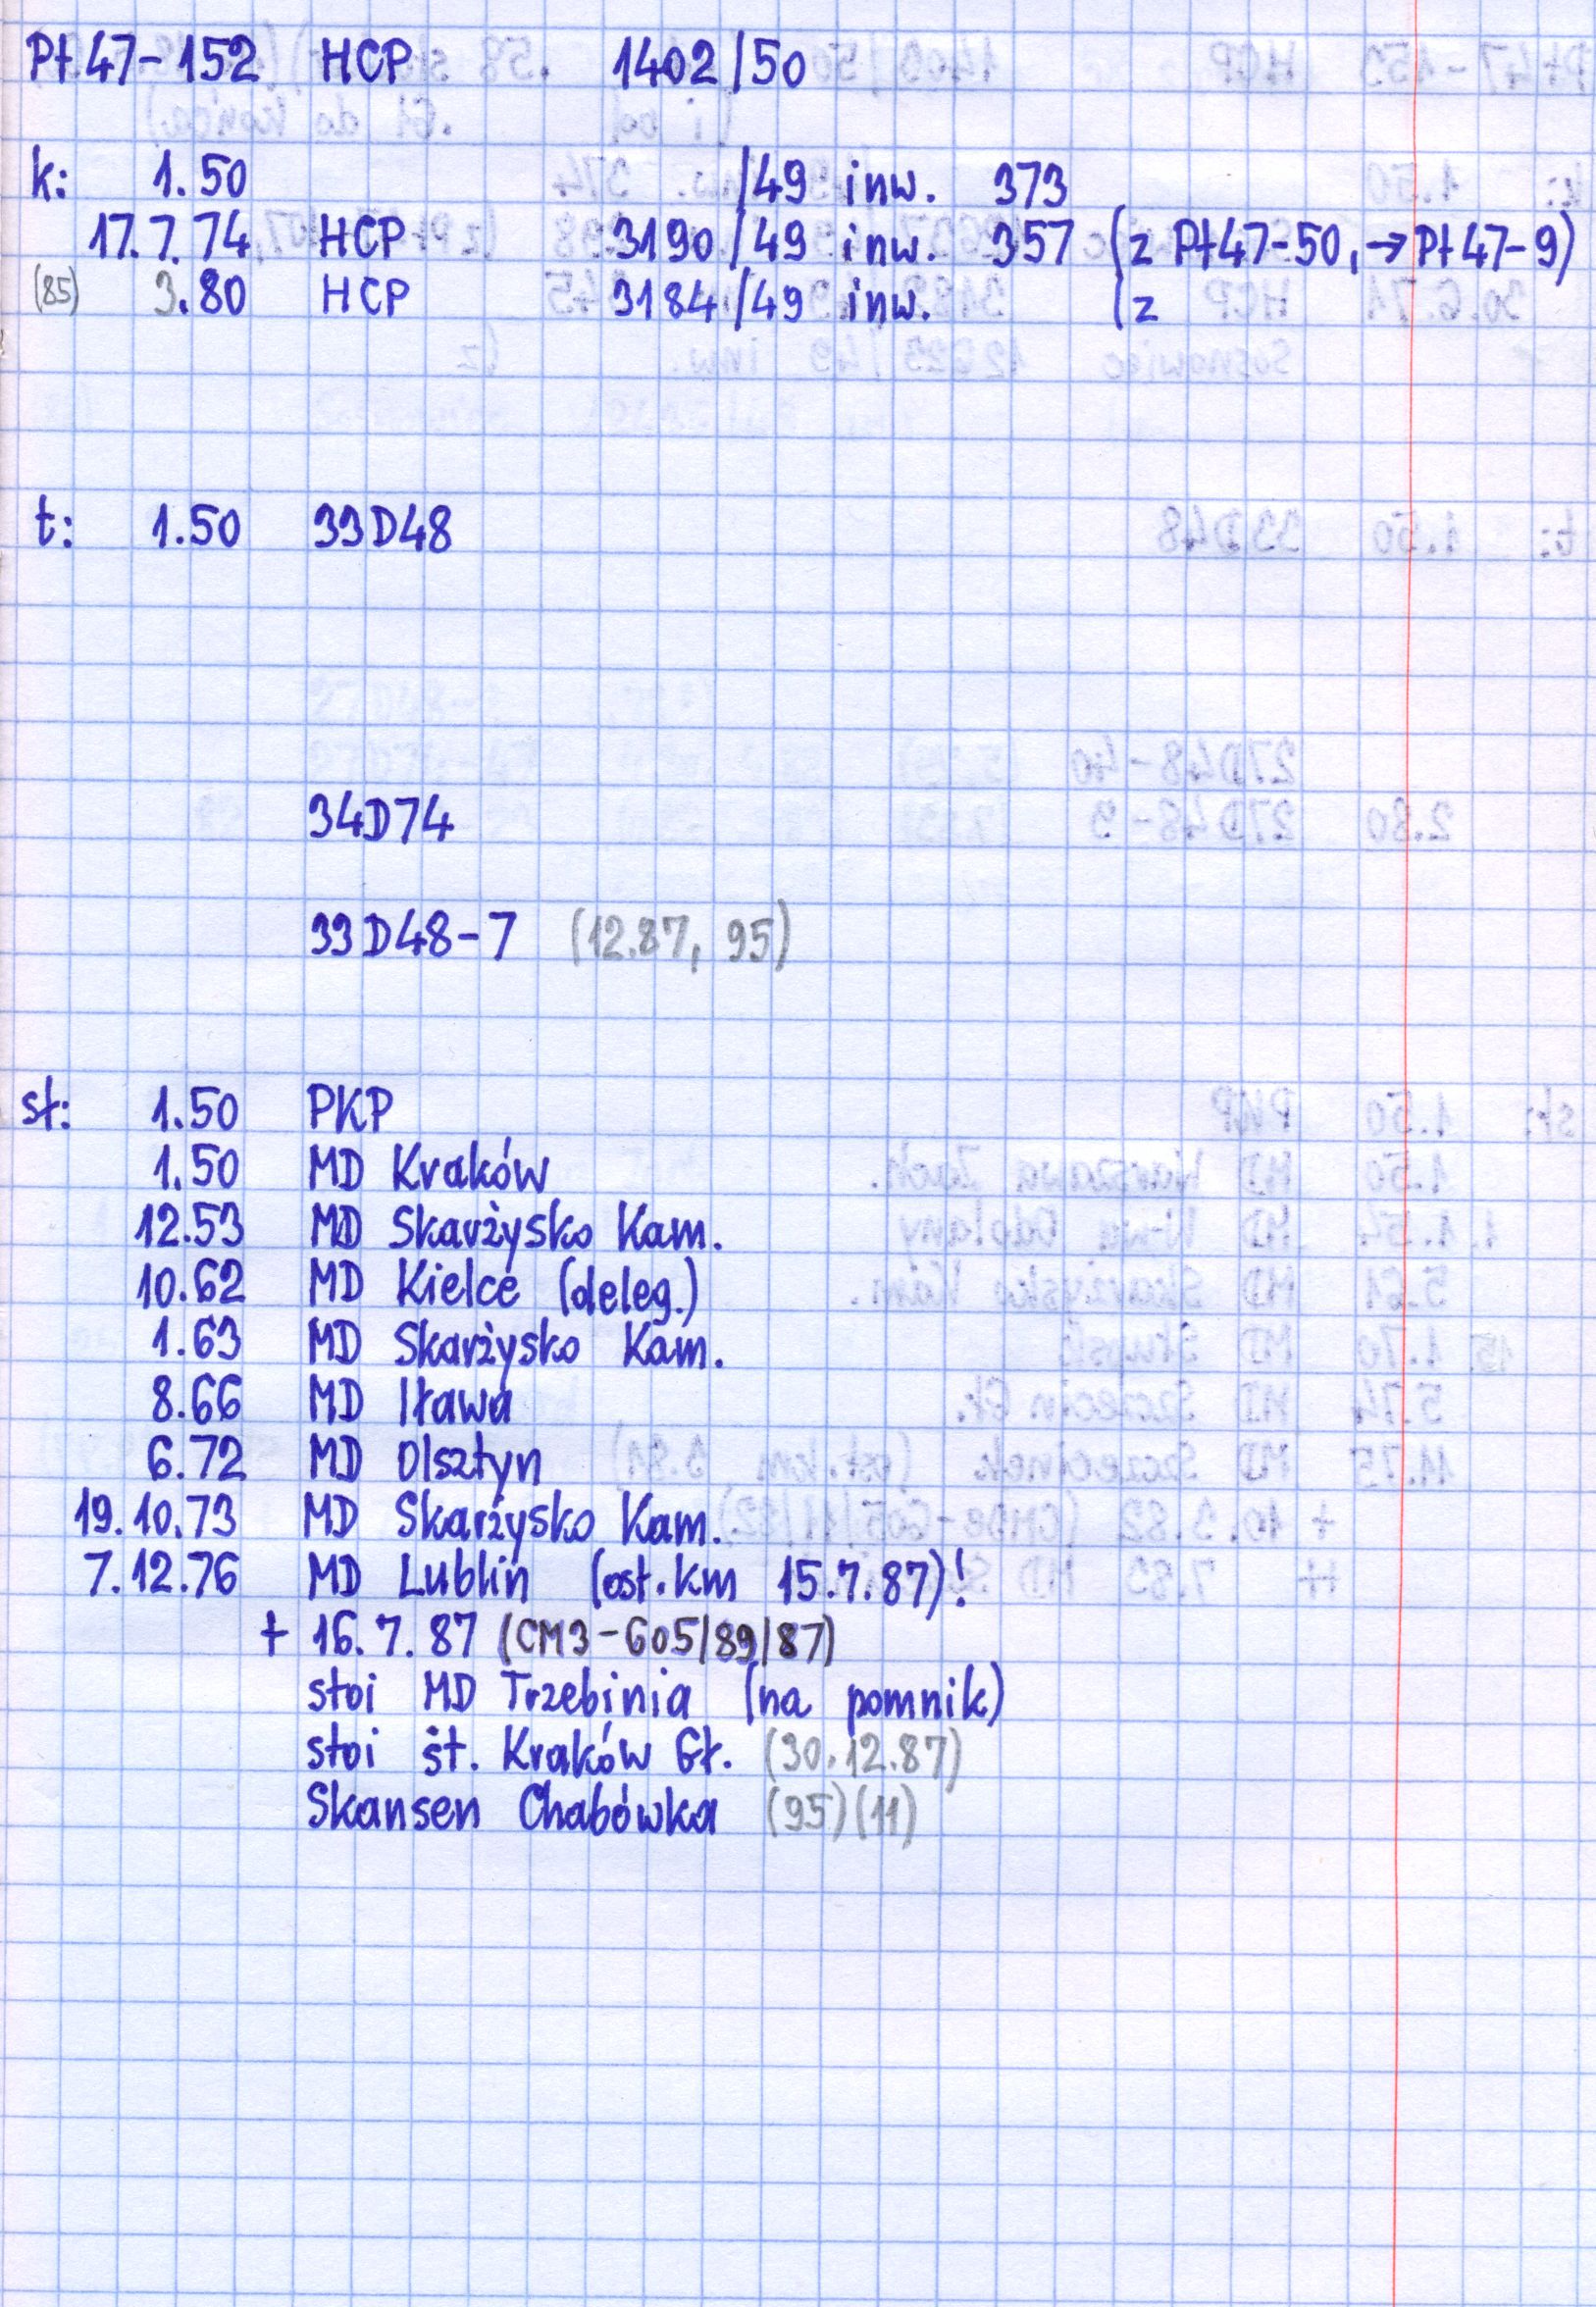 Pt47-152 HCP 1402/50
k: 1.50 /49 inw. 373
17.7.74 HCP 3190/49 inw. 357 (z Pt47-50, → Pt47-9)
(85) 3.80 HCP 3184/49 inw. (z
t: 1.50 33D48
34D74
33D48-7 (12.87, 95)
st: 1.50 PKP
1.50 MD Kraków
12.53 MD Skarżysko Kam.
10.62 MD Kielce (deleg.)
1.63 MD Skarżysko Kam.
8.66 MD Iława
6.72 MD Olsztyn
19.10.73 MD Skarżysko Kam.
7.12.76 MD Lublin (ost.km 15.7.87)!
+ 16.7.87 (CM3-605/89/87)
stoi MD Trzebinia (na pomnik)
stoi st. Kraków Gł. (30.12.87)
Skansen Chabówka (95)(11)